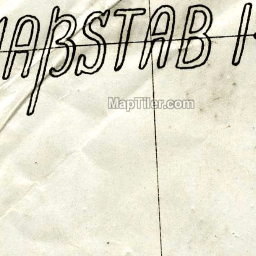 MAßSTAB 1:
MapTiler.com